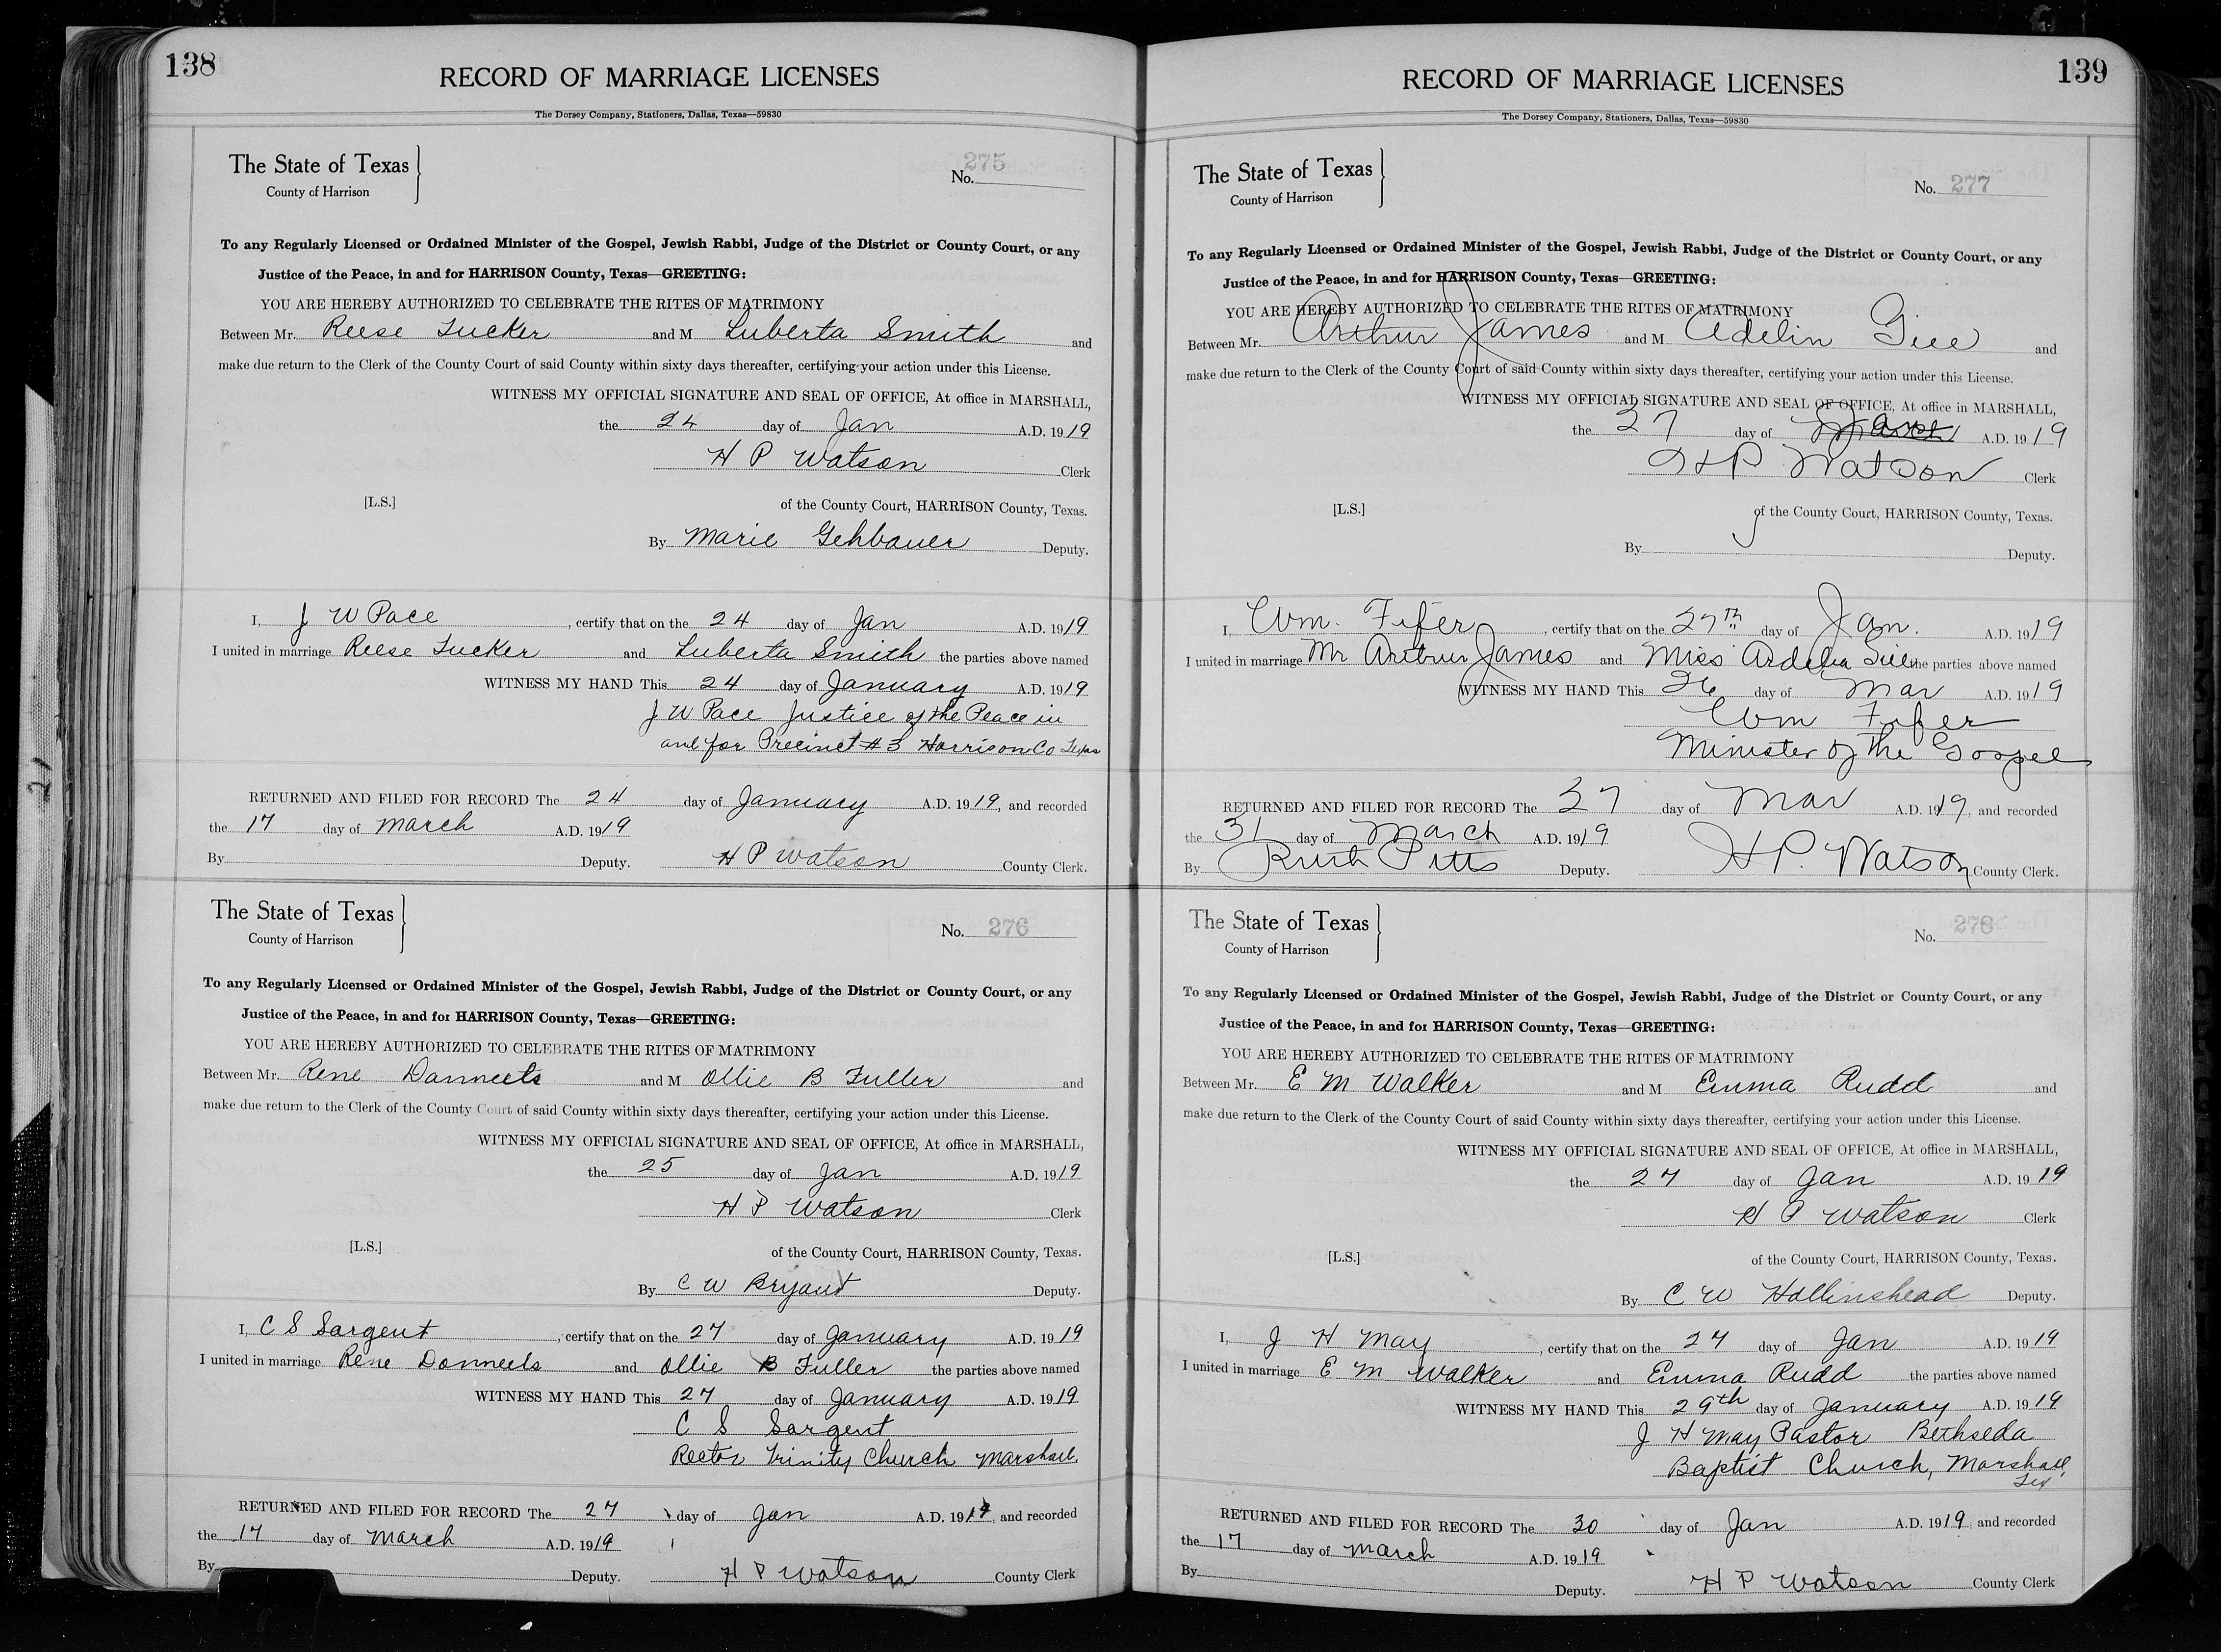 138
RECORD OF MARRIAGE LICENSES
The Dorsey Company, Stationers, Dallas, Texas—59830
The State of Texas
County of Harrison
No. 275
To any Regularly Licensed or Ordained Minister of the Gospel, Jewish Rabbi, Judge of the District or County Court, or any
Justice of the Peace, in and for HARRISON County, Texas—GREETING:
YOU ARE HEREBY AUTHORIZED TO CELEBRATE THE RITES OF MATRIMONY
Between Mr. Reese Tucker and M Luberta Smith and
make due return to the Clerk of the County Court of said County within sixty days thereafter, certifying your action under this License.
WITNESS MY OFFICIAL SIGNATURE AND SEAL OF OFFICE, At office in MARSHALL,
the 24 day of Jan A.D. 1919
H P Watson Clerk
[L.S.] of the County Court, HARRISON County, Texas.
By Marie Gehbauer Deputy.
I, J W Pace, certify that on the 24 day of Jan A.D. 1919
I united in marriage Reese Tucker and Luberta Smith the parties above named
WITNESS MY HAND This 24 day of January A.D. 1919
J W Pace Justice of the Peace in
and for Precinct #3 Harrison Co Texas
RETURNED AND FILED FOR RECORD The 24 day of January A.D. 1919, and recorded
the 17 day of March A.D. 1919
By Deputy. H P Watson County Clerk.
The State of Texas
County of Harrison
No. 276
To any Regularly Licensed or Ordained Minister of the Gospel, Jewish Rabbi, Judge of the District or County Court, or any
Justice of the Peace, in and for HARRISON County, Texas—GREETING:
YOU ARE HEREBY AUTHORIZED TO CELEBRATE THE RITES OF MATRIMONY
Between Mr. Rene Danneels and M Ollie B Fuller and
make due return to the Clerk of the County Court of said County within sixty days thereafter, certifying your action under this License.
WITNESS MY OFFICIAL SIGNATURE AND SEAL OF OFFICE, At office in MARSHALL,
the 25 day of Jan A.D. 1919
H P Watson Clerk
[L.S.] of the County Court, HARRISON County, Texas.
By C W Bryant Deputy.
I, C S Sargent, certify that on the 27 day of January A.D. 1919
I united in marriage Rene Donneels and Ollie B Fuller the parties above named
WITNESS MY HAND This 27 day of January A.D. 1919
C S Sargent
Rector Trinity Church Marshall.
RETURNED AND FILED FOR RECORD The 27 day of Jan A.D. 1919, and recorded
the 17 day of March A.D. 1919
By Deputy. H P Watson County Clerk
139
RECORD OF MARRIAGE LICENSES
The Dorsey Company, Stationers, Dallas, Texas—59830
The State of Texas
County of Harrison
No. 277
To any Regularly Licensed or Ordained Minister of the Gospel, Jewish Rabbi, Judge of the District or County Court, or any
Justice of the Peace, in and for HARRISON County, Texas—GREETING:
YOU ARE HEREBY AUTHORIZED TO CELEBRATE THE RITES OF MATRIMONY
Between Mr. Arthur James and M Adelin and
make due return to the Clerk of the County Court of said County within sixty days thereafter, certifying your action under this License.
WITNESS MY OFFICIAL SIGNATURE AND SEAL OF OFFICE, At office in MARSHALL,
the 27 day of A.D. 1919
H P Watson Clerk
[L.S.] of the County Court, HARRISON County, Texas.
By Deputy.
I, Wm. Fifer, certify that on the 27th day of Jan. A.D. 1919
I united in marriage Mr Arthur James and Miss the parties above named
WITNESS MY HAND This 26 day of Mar A.D. 1919
Wm Fifer
Minister of the Gospel
RETURNED AND FILED FOR RECORD The 27 day of Mar A.D. 1919, and recorded
the 31 day of March A.D. 1919
By Ruth Pitts Deputy. H P. Watson County Clerk.
The State of Texas
County of Harrison
No. 278
To any Regularly Licensed or Ordained Minister of the Gospel, Jewish Rabbi, Judge of the District or County Court, or any
Justice of the Peace, in and for HARRISON County, Texas—GREETING:
YOU ARE HEREBY AUTHORIZED TO CELEBRATE THE RITES OF MATRIMONY
Between Mr. E M Walker and M Emma Rudd and
make due return to the Clerk of the County Court of said County within sixty days thereafter, certifying your action under this License.
WITNESS MY OFFICIAL SIGNATURE AND SEAL OF OFFICE, At office in MARSHALL,
the 27 day of Jan A.D. 1919
H P Watson Clerk
[L.S.] of the County Court, HARRISON County, Texas.
By C W Hollinshead Deputy.
I, J H May, certify that on the 27 day of Jan A.D. 1919
I united in marriage E M Walker and Emma Rudd the parties above named
WITNESS MY HAND This 29th day of January A.D. 1919
J H May Pastor Bethseda
Baptist Church, Marshall,
Tex
RETURNED AND FILED FOR RECORD The 30 day of Jan A.D. 1919, and recorded
the 17 day of March A.D. 1919
By Deputy. H P Watson County Clerk